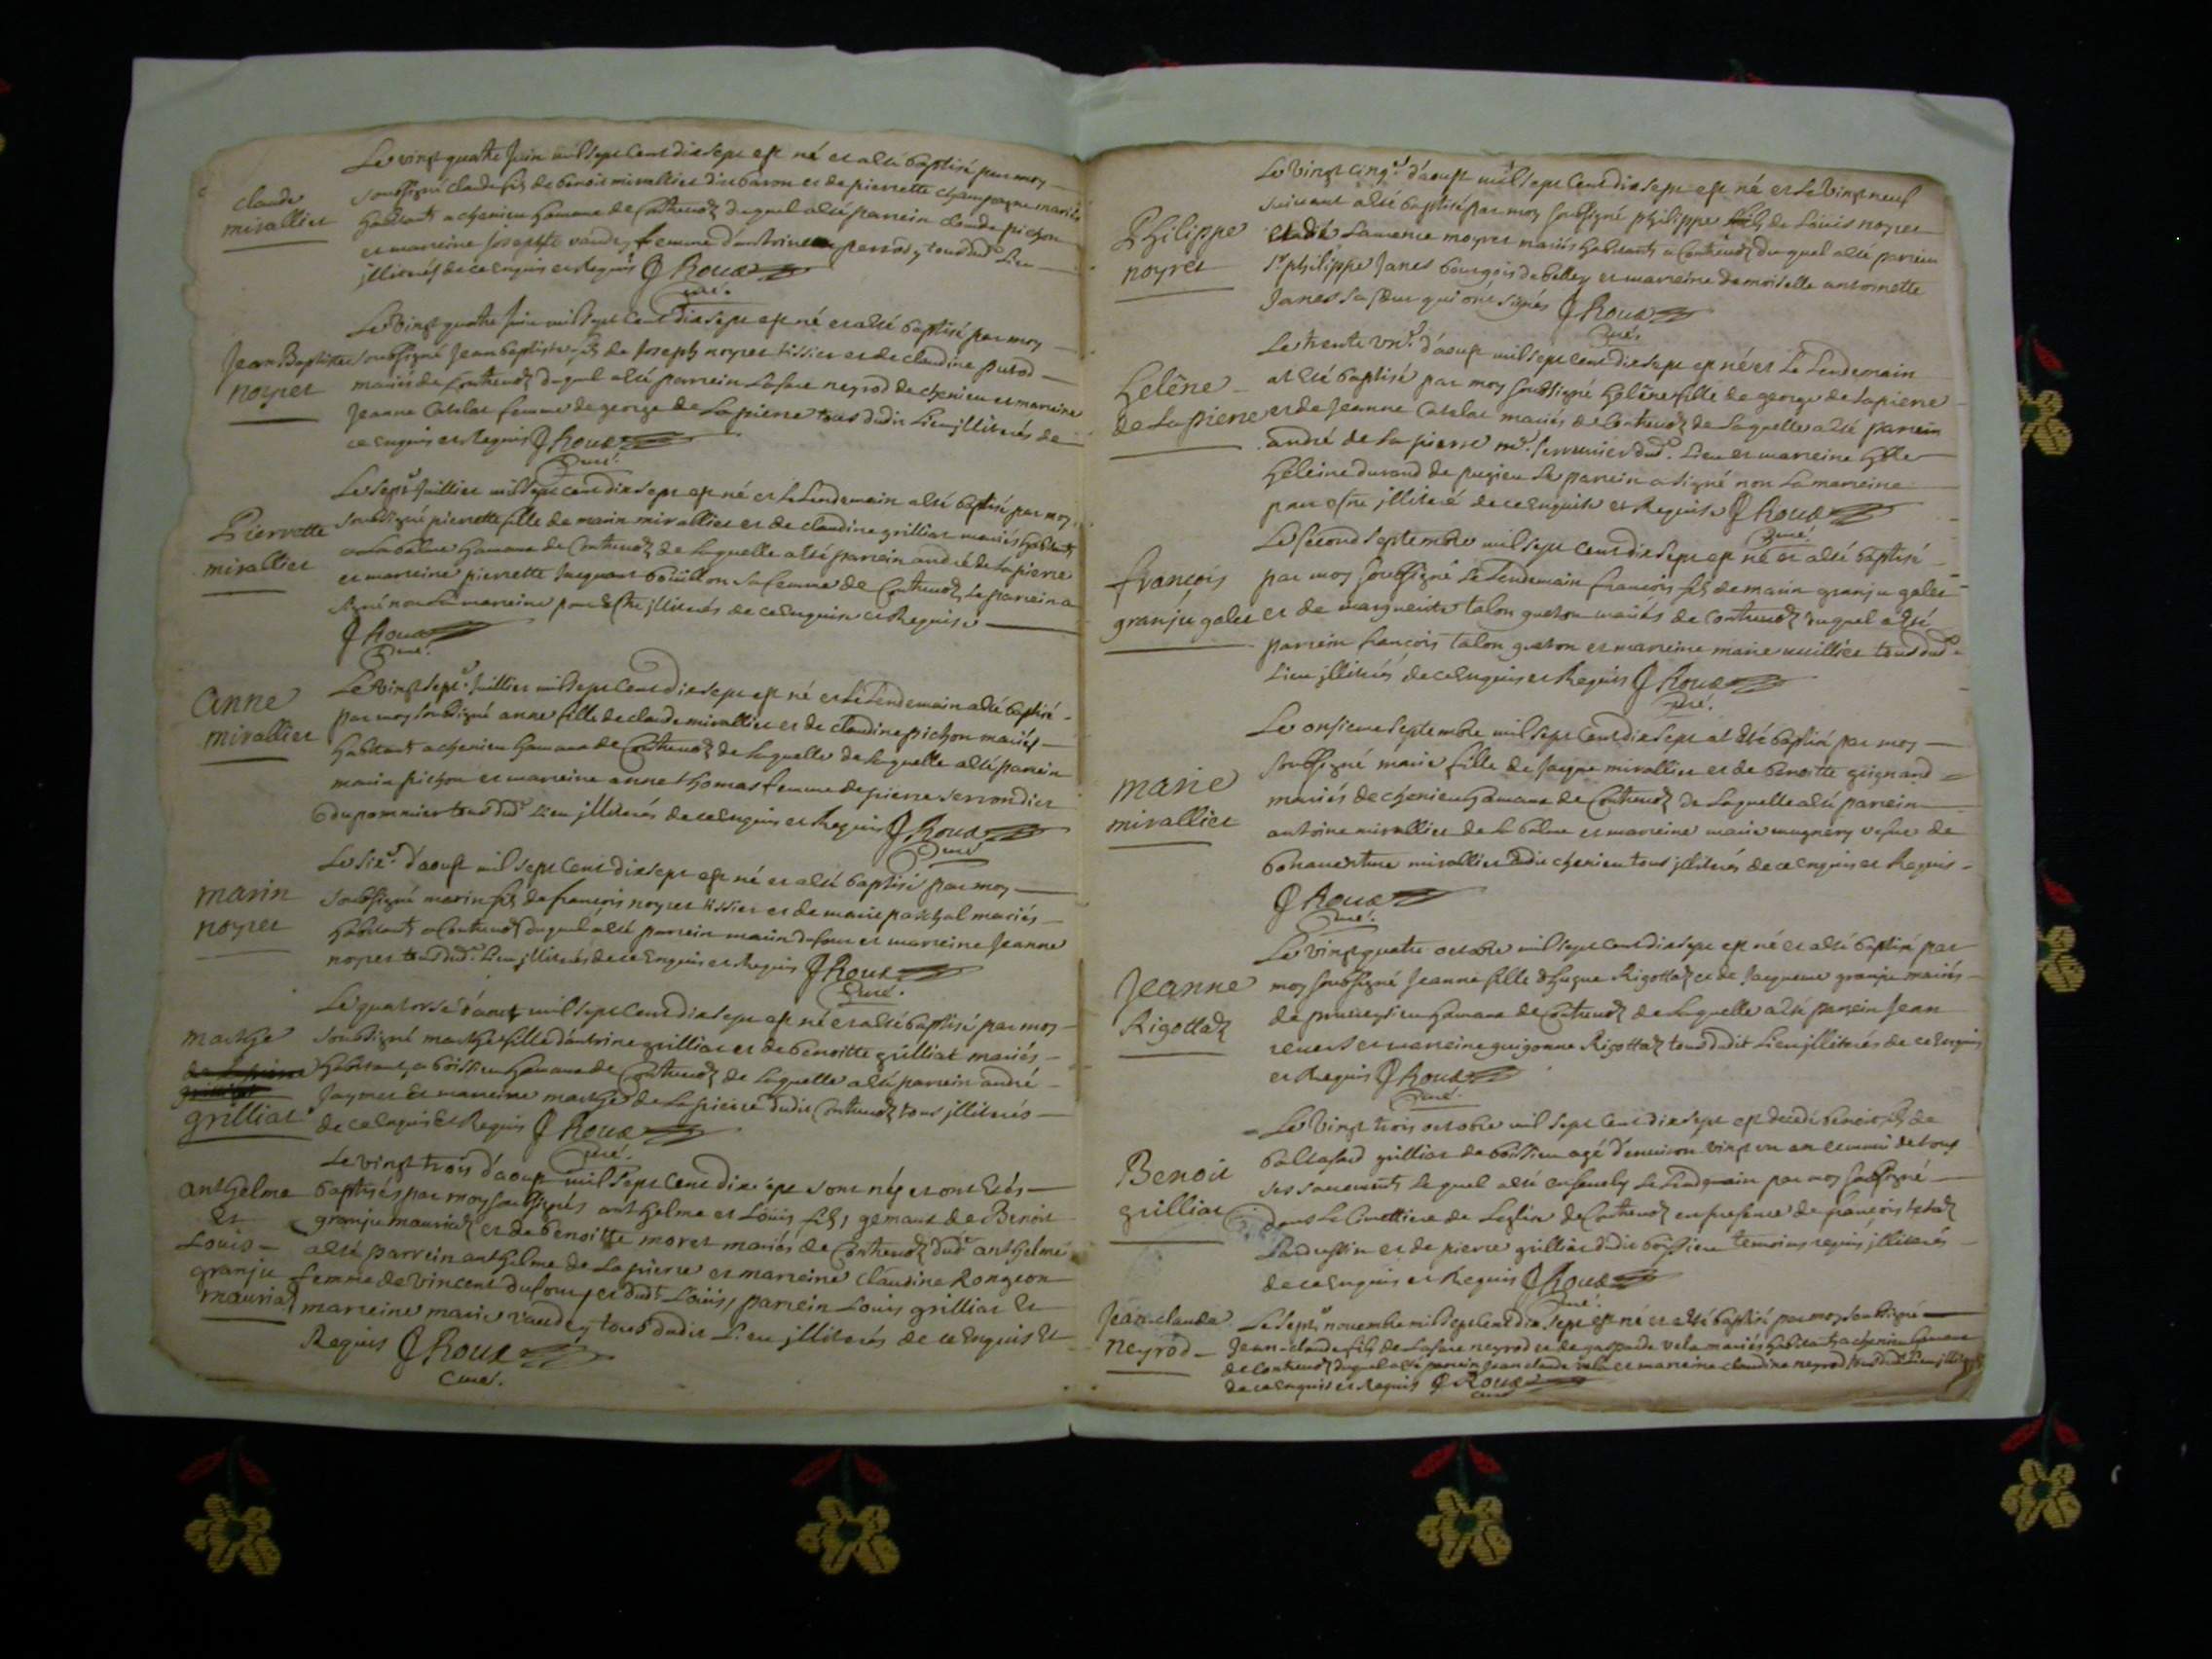 claude
mirallier
Le vingt quatre Juin mil sept cent dix sept est né et a été baptisé par moy
soubsigné claude fils de benoit mirallier dit baron et de pierrette champagne mariés
habitants a chenieu hameau de Contreuoz duquel a été parrein claude pichon
et marreine Josephte vaudey femme d'anthoine perrod tous dud. Lieu
jllitérés de ce Enquis et Requis J Roux
curé.
Jean Baptiste
noyret
Le vingt quatre Juin mil sept cent dix sept est né et a été baptisé par moy
soubsigné Jean baptiste fils de Joseph noyret tissier et de claudine putod
mariés de Contreuoz duquel a été parrein Lasare neyrod de chenieu et marreine
Jeanne Catelat femme de george de Lapierre tous dudit Lieu jllitérés de
ce enquis et Requis J Roux
curé.
Pierrette
mirallier
Le sept Juillier mil sept cent dix sept est né et le Lendemain a été baptisé par moy
soubsigné pierrette fille de marin mirallier et de claudine grilliat mariés habitants
a La balme hameau de Contreuoz de Laquelle a été parrein andré de Lapierre
et marreine pierrette Jacquand bouillon sa femme de Contreuoz, Le parrein a
signé non La marreine pour Estre jllitérés de ce Enquise et Requise
J Roux
curé.
Anne
mirallier
Le vingt sept Juillier mil sept cent dix sept est né et le Lendemain a été baptisé
par moy soubsigné anne fille de claude mirallier et de claudine pichon mariés
habitants a chenieu hameau de Contreuoz de Laquelle de Laquelle a été parrein
marin pichon et marreine anne thomas femme de pierre serrondiet
du pommier tous dud. Lieu jllitérés de ce Enquis et Requis J Roux
curé
marin
noyret
Le six d'aoust mil sept cent dix sept est né et a été baptisé par moy
soubsigné marin fils de françois noyret tissier et de marie paschal mariés
habitants a Contreuoz duquel a été parrein marin dufour et marreine Jeanne
noyret tous dud. Lieu jllitérés de ce Enquis et Requis J Roux
curé.
marthe
grilliat
Le quatorse d'aoust mil sept cent dix sept est né et a été baptisé par moy
soubsigné marthe fille d'antoine grilliat et de benoitte grilliat mariés
habitants a boissieu hameau de Contreuoz de Laquelle a été parrein andré
Jaymet et marreine marthe de Lapierre dudit Contreuoz tous jllitérés
de ce Enquis Et Requis J Roux
curé.
anthelme
Et
Louis
granju
mauriaz
Le vingt trois d'aoust mil sept cent dix sept sont nés et ont étés
baptisés par moy soubsignés anthelme et Loüis fils gemaux de Benoit
granju mauriaz et de benoitte moret mariés de Contreuoz dud. anthelme
a été parrein anthelme de Lapierre et marreine claudine Rongeon
femme de vincent dufour, et dudt. Loüis, parrein Louis grilliat Et
marreine marie vaudey tous dudit Lieu jllitérés de ce Enquis Et
Requis J Roux
curé.
Philippe
noyret
Le Vingt cinq d'aoust mil sept cent dix sept est né et Le Vingt neuf
suivant a été baptisé par moy soubsigné philippe fils de Loüis noyret
Laurence moyret mariés habitants a Contreuoz duquel a été parrein
Sr philippe Janet bourgois de belley et marreine demoiselle antoinette
Janet sa sœur qui ont signés J Roux
curé.
Helêne
de La pierre
Le trente vn d'aoust mil sept cent dix sept est né et Le Lendemain
at été baptisé par moy soubsigné helêne fille de george de Lapierre
et de Jeanne Catelat mariés de Contreuoz de Laquelle a été parrein
andré de La pierre me. serrurier dud. Lieu et marreine
heleine durand de pugieu Le parrein a signé non La marreine
pour estre jllitéré de ce Enquise et Requise J Roux
curé.
françois
granju galei
Le second septembre mil sept cent dix sept est né et a été baptisé
par moy soubsigné Le Lendemain francois fils de marin granju galei
et de marguerite talon gueton mariés de Contreuoz duquel a été
parrein françois talon gueton et marreine marie millier tous dud.
Lieu jllitérés de ce Enquis et Requis J Roux
curé.
marie
mirallier
Le onsieme septembre mil sept cent dix sept at été baptisé par moy
soubsigné marie fille de Jaque mirallier et de benoitte guignard
mariés de chenieu hameau de Contreuoz de Laquelle a été parrein
antoine mirallier de la balme et marreine marie mugnery vefue de
bonauenture mirallier dudit chenieu tous jllitérés de ce Enquis et Requis
J Roux
curé.
Jeanne
Rigottaz
Le vingt quatre octobre mil sept cent dix sept est né et a été baptisé par
moy soubsigné Jeanne fille d'hugue Rigottaz et de Jaquème granju mariés
de hameau de Contreuoz de Laquelle a été parrein Jean
et marreine guigonne Rigottaz tous dudit Lieu jllitérés de ce Enquis
et Requis J Roux
curé.
Benoit
grilliat
Le Vingt trois octobre mil sept cent dix sept est decedé benoit fils de
baltasard grilliat de boissieu agé d'enuiron vingt vn an et muni de tous
ses sacrements Lequel a été enseuely Le Lendemain par moy soubsigné
dans Le Cimettiere de Leglise de Contreuoz en presence de françois
et de pierre grilliat dudit boissieu temoins requis jllitérés
de ce Enquis et Requis J Roux
curé.
Jean-claude
neyrod
Le sept novembre mil sept cent dix sept est né et a été baptisé par moy soubsigné
Jean-claude fils de Lasare neyrod et de gasparde vela mariés habitants a chenieu hameau
de Contreuoz duquel a été parrein Jean claude vela et marreine claudine neyrod tous dud. Lieu jllitérés
de ce Enquis et Requis J Roux
curé